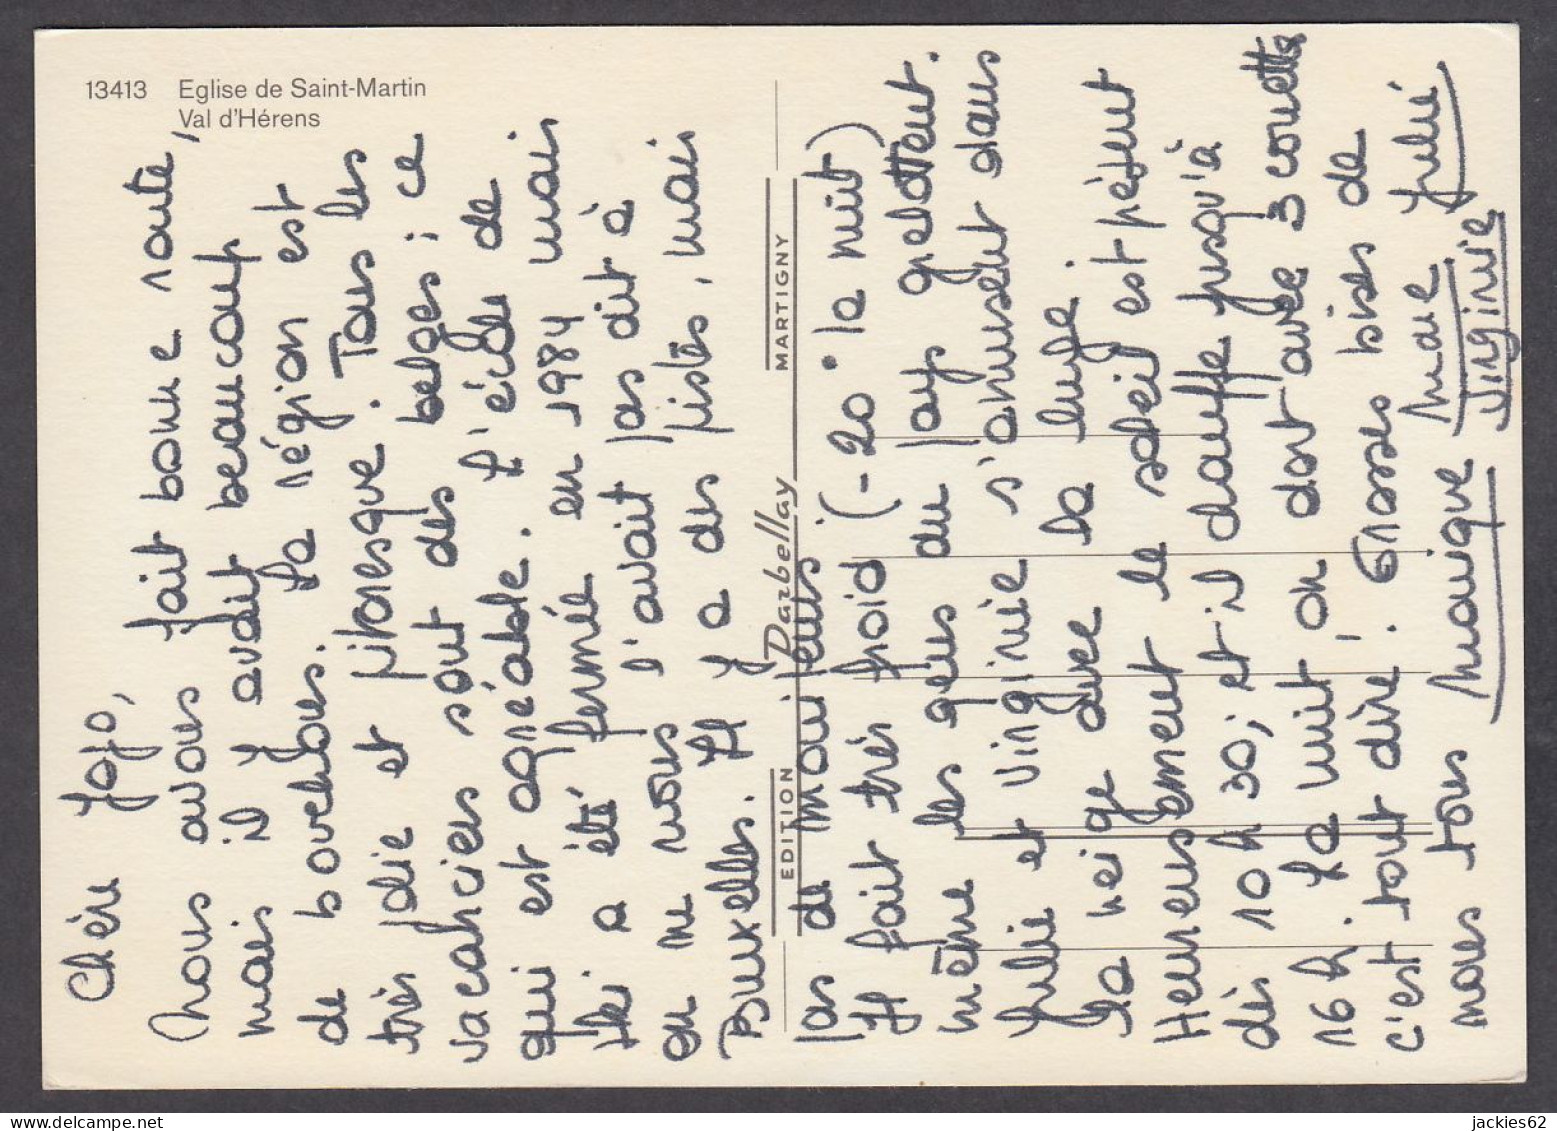 13413 Eglise de Saint-Martin
Val d'Hérens
EDITION Darbellay MARTIGNY
Chère Jojo,
Nous avons fait bonne route,
mais il y avait beaucoup
de bouchons. La région est
très jolie et pitoresque. Tous les
vacanciers sont des belges ; ce
qui est agréable. L'école de
ski a été fermée en 1984 mais
on ne nous l'avait pas dit à
Bruxelles. Il y a des pistes, mais
pas de moniteurs !
Il fait très froid (-20° la nuit)
même les gens du pays grelottent.
Julie et Virginie s'amusent dans
la neige avec la luge.
Heureusement le soleil est présent
dès 10 h 30 ; et il chauffe jusqu'à
16 h. La nuit, on dort avec 3 couettes
c'est tout dire. Grosses bises de
nous tous Monique Marie Julie
Virginie
jackies62